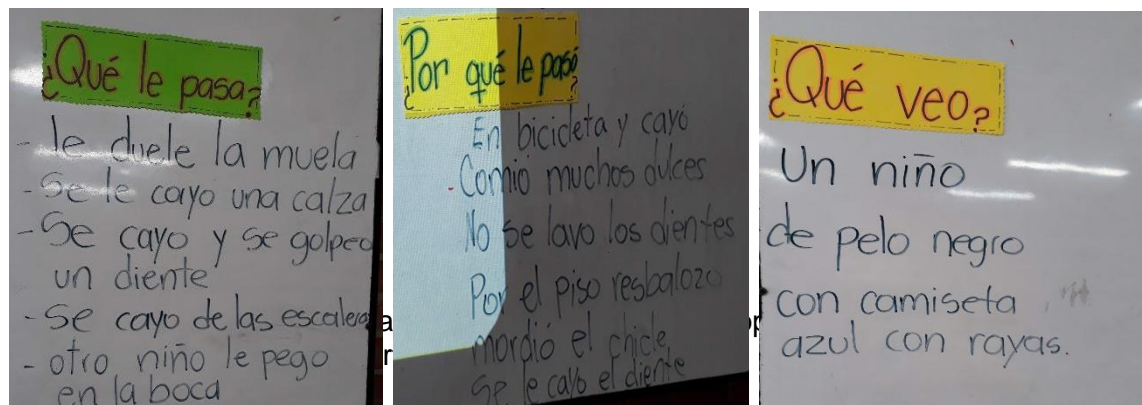 ¿Qué le pasa?
- le duele la muela
- Se le cayo una calza
- Se cayo y se golpeo
un diente
- Se cayo de las escaleras
- otro niño le pego
en la boca
¿Por qué le pasó
En bicicleta y cayó
Comió muchos dulces
No se lavo los dientes
Por el piso resbalozo
mordió el chicle,
se le cayo el diente
¿Qué veo?
Un niño
de pelo negro
con camiseta
azul con rayas.